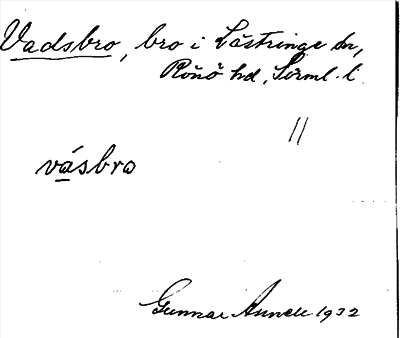 Vadsbro, bro i Lästringe sn,
Rönö hd, Sörml. l.
//
vásbro
Gunnar Anneli 1932